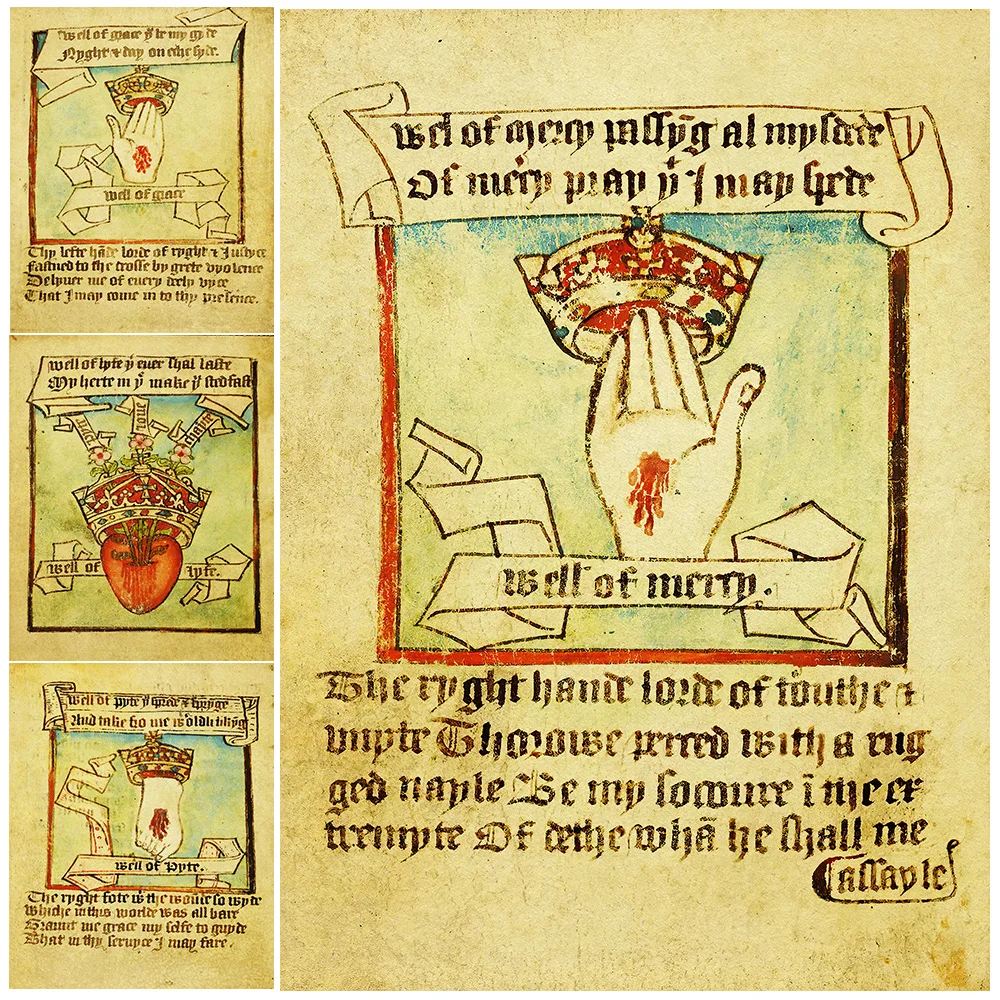 well of grace yͤ be my gyde
Nyght & day on eche syde.
well of grace
Thy lefte hāde lorde of ryght & Justyce
fastned to the crosse by grete vyolence
Delyuer me of euery dedly vyce
That I may come in to thy presence.
well of lyfe yͭ euer shal laste
My herte in yͤ make yͧ stedfast
well of lyfe.
well of pyte
And take fro me worldli thīg
well of pyte.
The ryght fote wͭ the wounde so wyde
whiche in this worlde was all bare
Graunt me grace my selfe to guyde
That in thy seruyce I may fare.
well of mercy passȳg al my dede
Of mercy pray yͤ I may spede
well of mercy.
The ryght hande lorde of trouthe &
vnyte Thorowe perced with a rug
ged nayle Be my socoure ī the ex
tremyte Of dethe whā he shall me
assayle